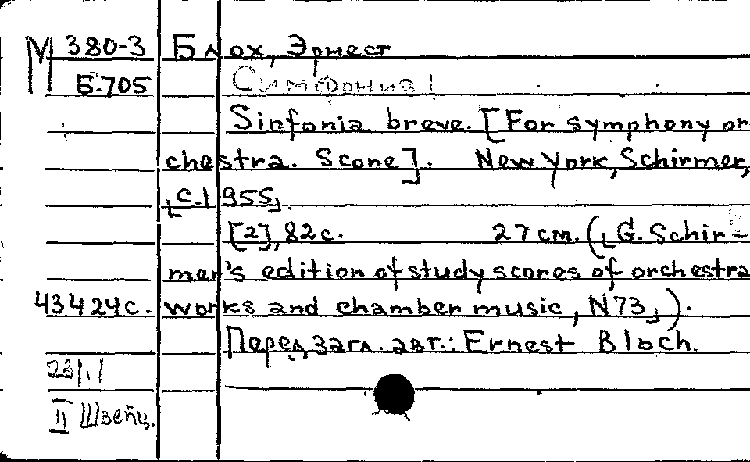 М 380-3 Блох, Эрнест
Б.705 Симфония!
Sinfonia breve. [For symphony or
chestra. Score]. New York, Schirmer,
[c.1955].
[2], 82 c. 27 cm. ([G. Schir-
mer's edition of study scores of orchestra
43424c. works and chamber music, N73]).
Перед загл. авт.: Ernest Bloch.
II Швейц.